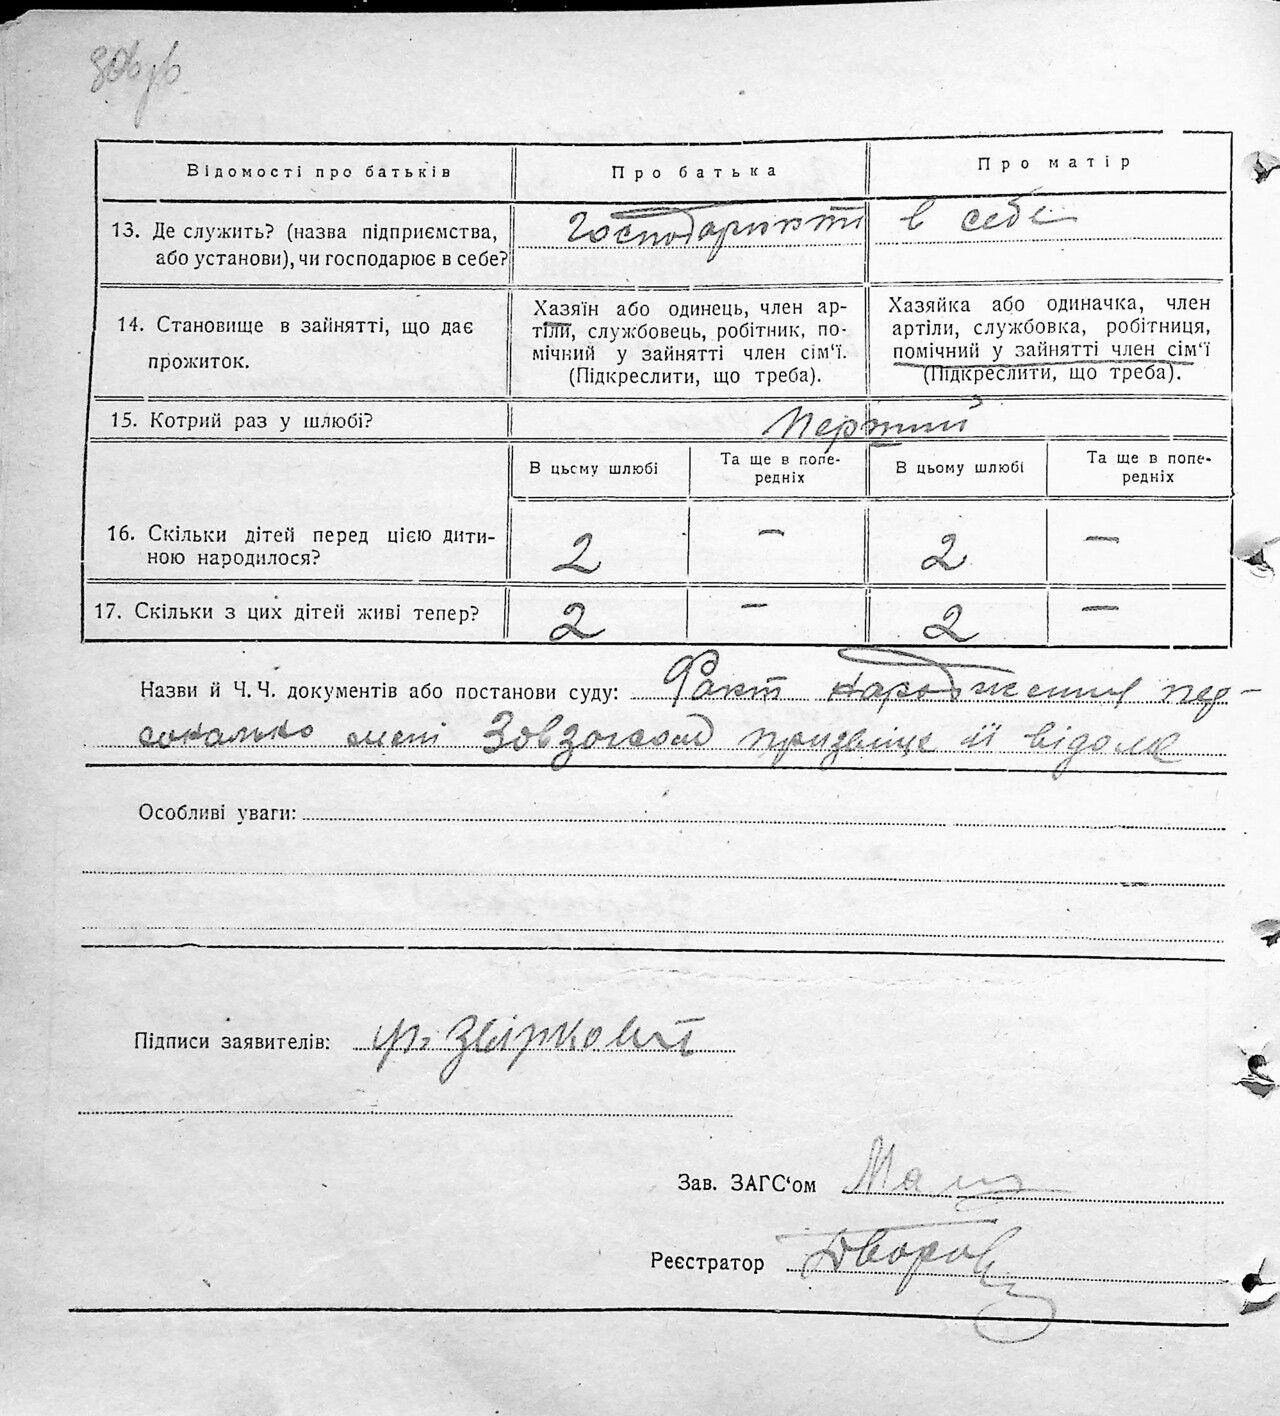 Відомості про батьків
Про батька
Про матір
13. Де служить? (назва підприємства,
або установи), чи господарює в себе?
Господарюють в себе
14. Становище в зайнятті, що дає
прожиток.
Хазяїн або одинець, член ар-
тіли, службовець, робітник, по-
мічний у зайнятті член сім'ї.
(Підкреслити, що треба).
Хазяйка або одиначка, член
артіли, службовка, робітниця,
помічний у зайнятті член сім'ї
(Підкреслити, що треба).
15. Котрий раз у шлюбі?
Перший
В цьому шлюбі
Та ще в попе-
редніх
В цьому шлюбі
Та ще в попе-
редніх
16. Скільки дітей перед цією дити-
ною народилося?
2 — 2 —
17. Скільки з цих дітей живі тепер?
2 — 2 —
Назви й Ч. Ч. документів або постанови суду: Факт народження пер-
сонально мені призвіще її відоме
Особливі уваги:
Підписи заявителів: Звіркович
Зав. ЗАГС'ом
Реєстратор